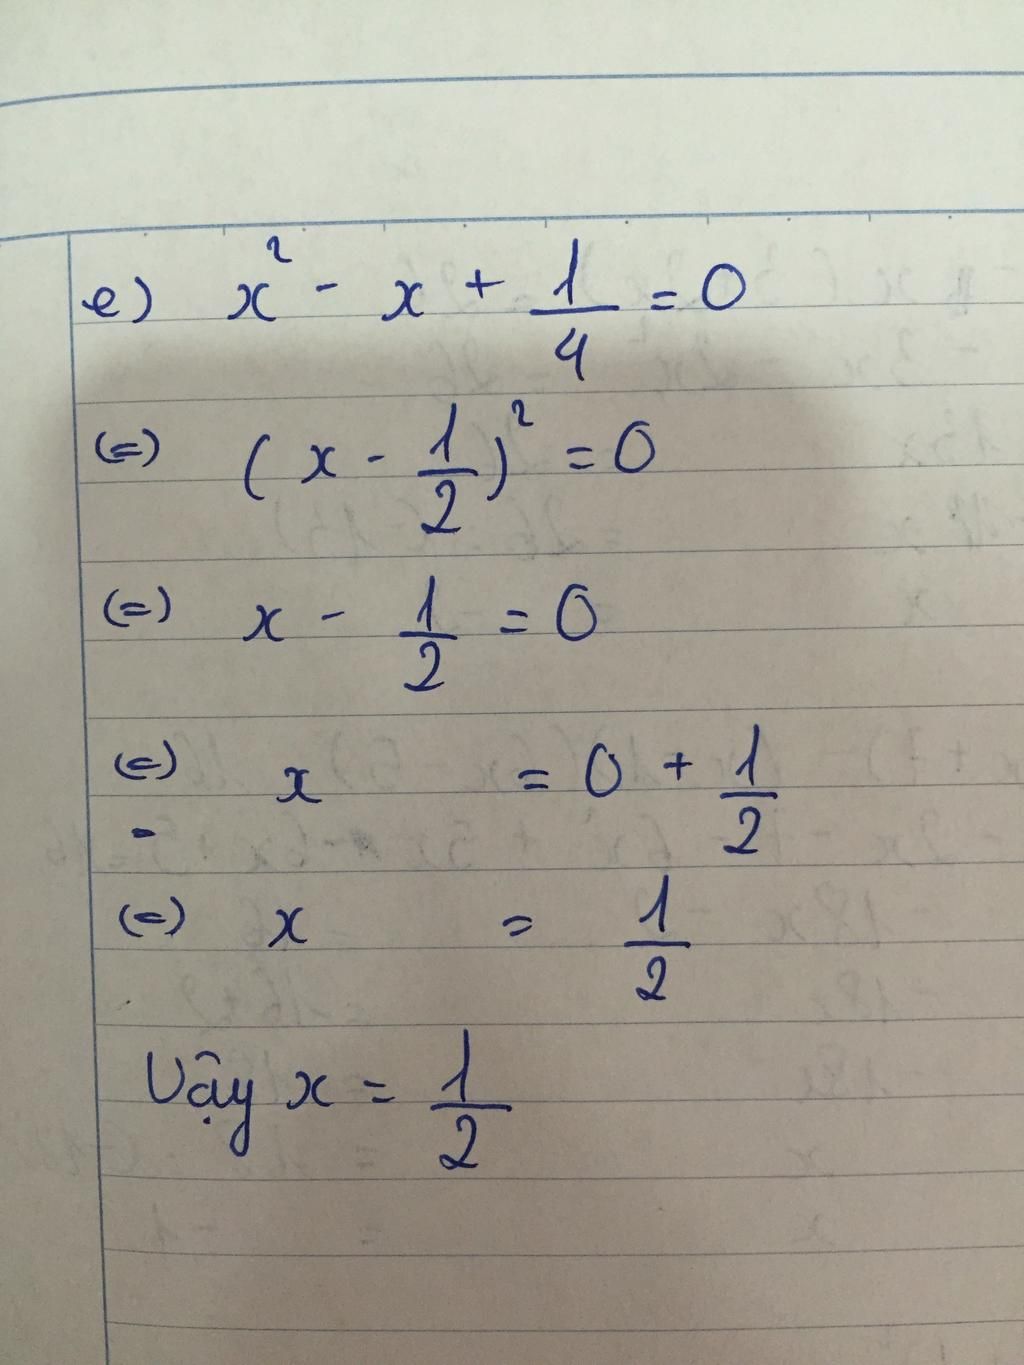 e) x² - x + 1/4 = 0
(=) (x - 1/2)² = 0
(=) x - 1/2 = 0
(=) x = 0 + 1/2
(=) x = 1/2
Vậy x = 1/2